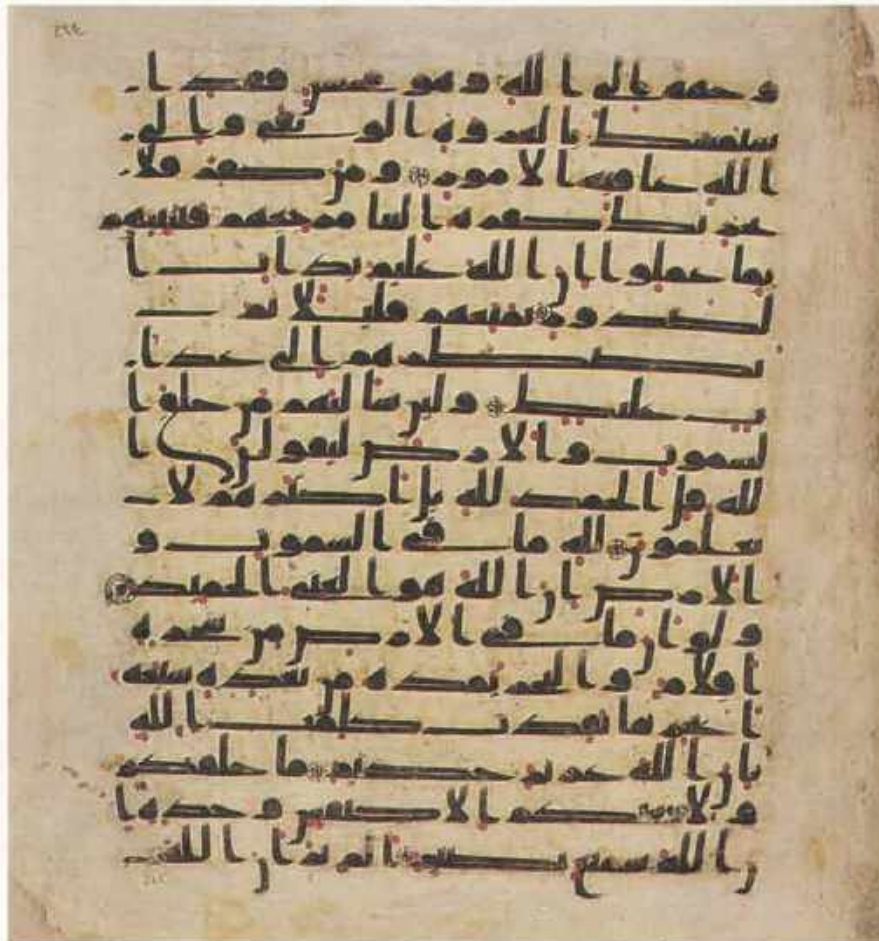 وجهه الى الله وهو محسن فقد ا
ستمسك بالعروة الوثقى والى
الله عاقبة الامور ومن كفر فلا
يحزنك كفره الينا مرجعهم فننبئهم
بما عملوا ان الله عليم بذات ا
لصدور نمتعهم قليلا ثم
نضطرهم الى عذا
ب غليظ ولئن سالتهم من خلق ا
لسموت والارض ليقولن ا
لله قل الحمد لله بل اكثرهم لا
يعلمون لله ما في السموت و
الارض ان الله هو الغني الحميد
ولو ان ما في الارض من شجرة
اقلام والبحر يمده من بعده سبعة
ابحر ما نفدت كلمت الله
ان الله عزيز حكيم ما خلقكم
ولا بعثكم الا كنفس وحدة ا
ن الله سميع بصير الم تر ان الله